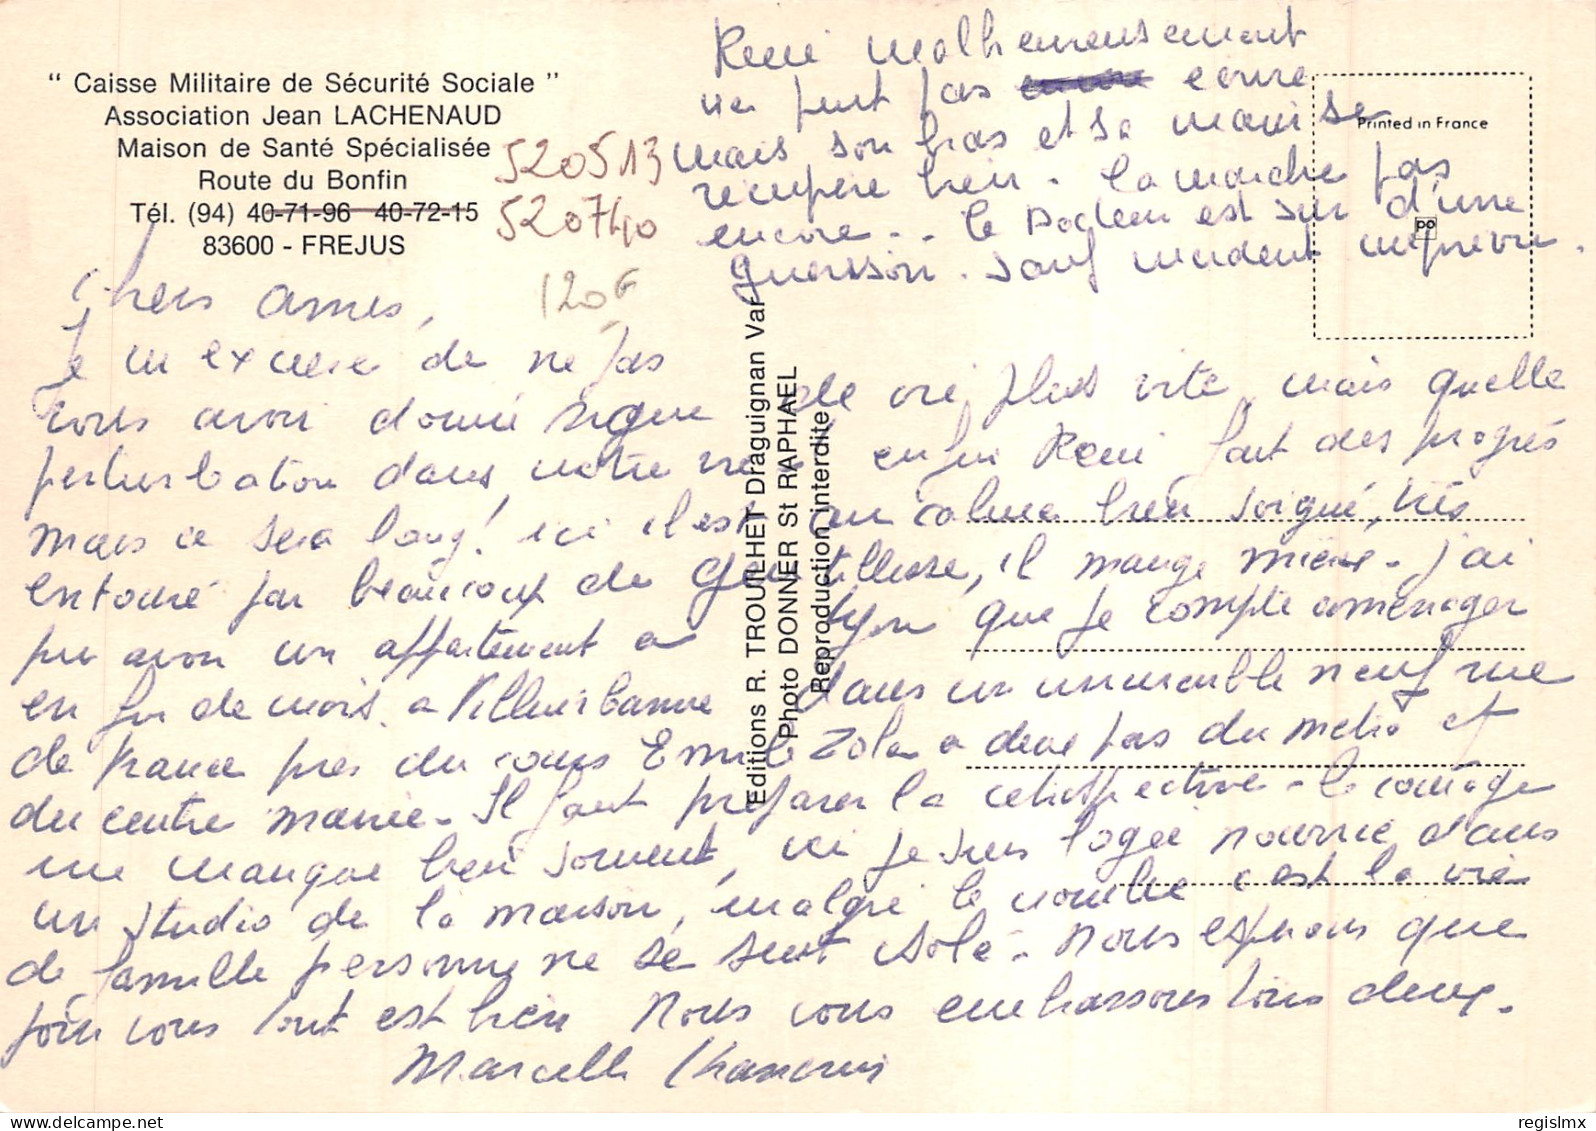 " Caisse Militaire de Sécurité Sociale "
Association Jean LACHENAUD
Maison de Santé Spécialisée
Route du Bonfin
Tél. (94) 40-71-96 40-72-15
83600 - FREJUS
520513
520740
120F
René malheureusement
ne peut pas écrire
mais son bras et sa main se
récupère bien - la marche pas
encore - - le Docteur est sur d'une
guerison. Sauf incident imprévu.
Printed in France
Chers Amis,
Je m excuse de ne pas
vous avoir donné signe de vie plus vite, mais quelle
perturbation dans notre vie enfin René fait des progrès
mais ce sera long! ici il est au calme bien soigné, très
entouré par beaucoup de gentillesse, il mange mieux - J'ai
pu avoir un appartement a Lyon que je compte aménager
en fin de mois a Villeurbanne dans un immeuble neuf rue
de France près du cours Emile Zola a deux pas du métro et
du centre mairie - Il faut préparer la - le courage
me manque bien souvent, ici je suis logée nourrie dans
un studio de la maison, malgré le nombre c'est la vie
de famille personne ne se sent isolé - Nous espérons que
pour vous tout est bien Nous vous embrassons tous deux.
Marcelle
Editions R. TROUILHET Draguignan Var
Photo DONNER St RAPHAEL
Reproduction interdite
regislmx
delcampe.net